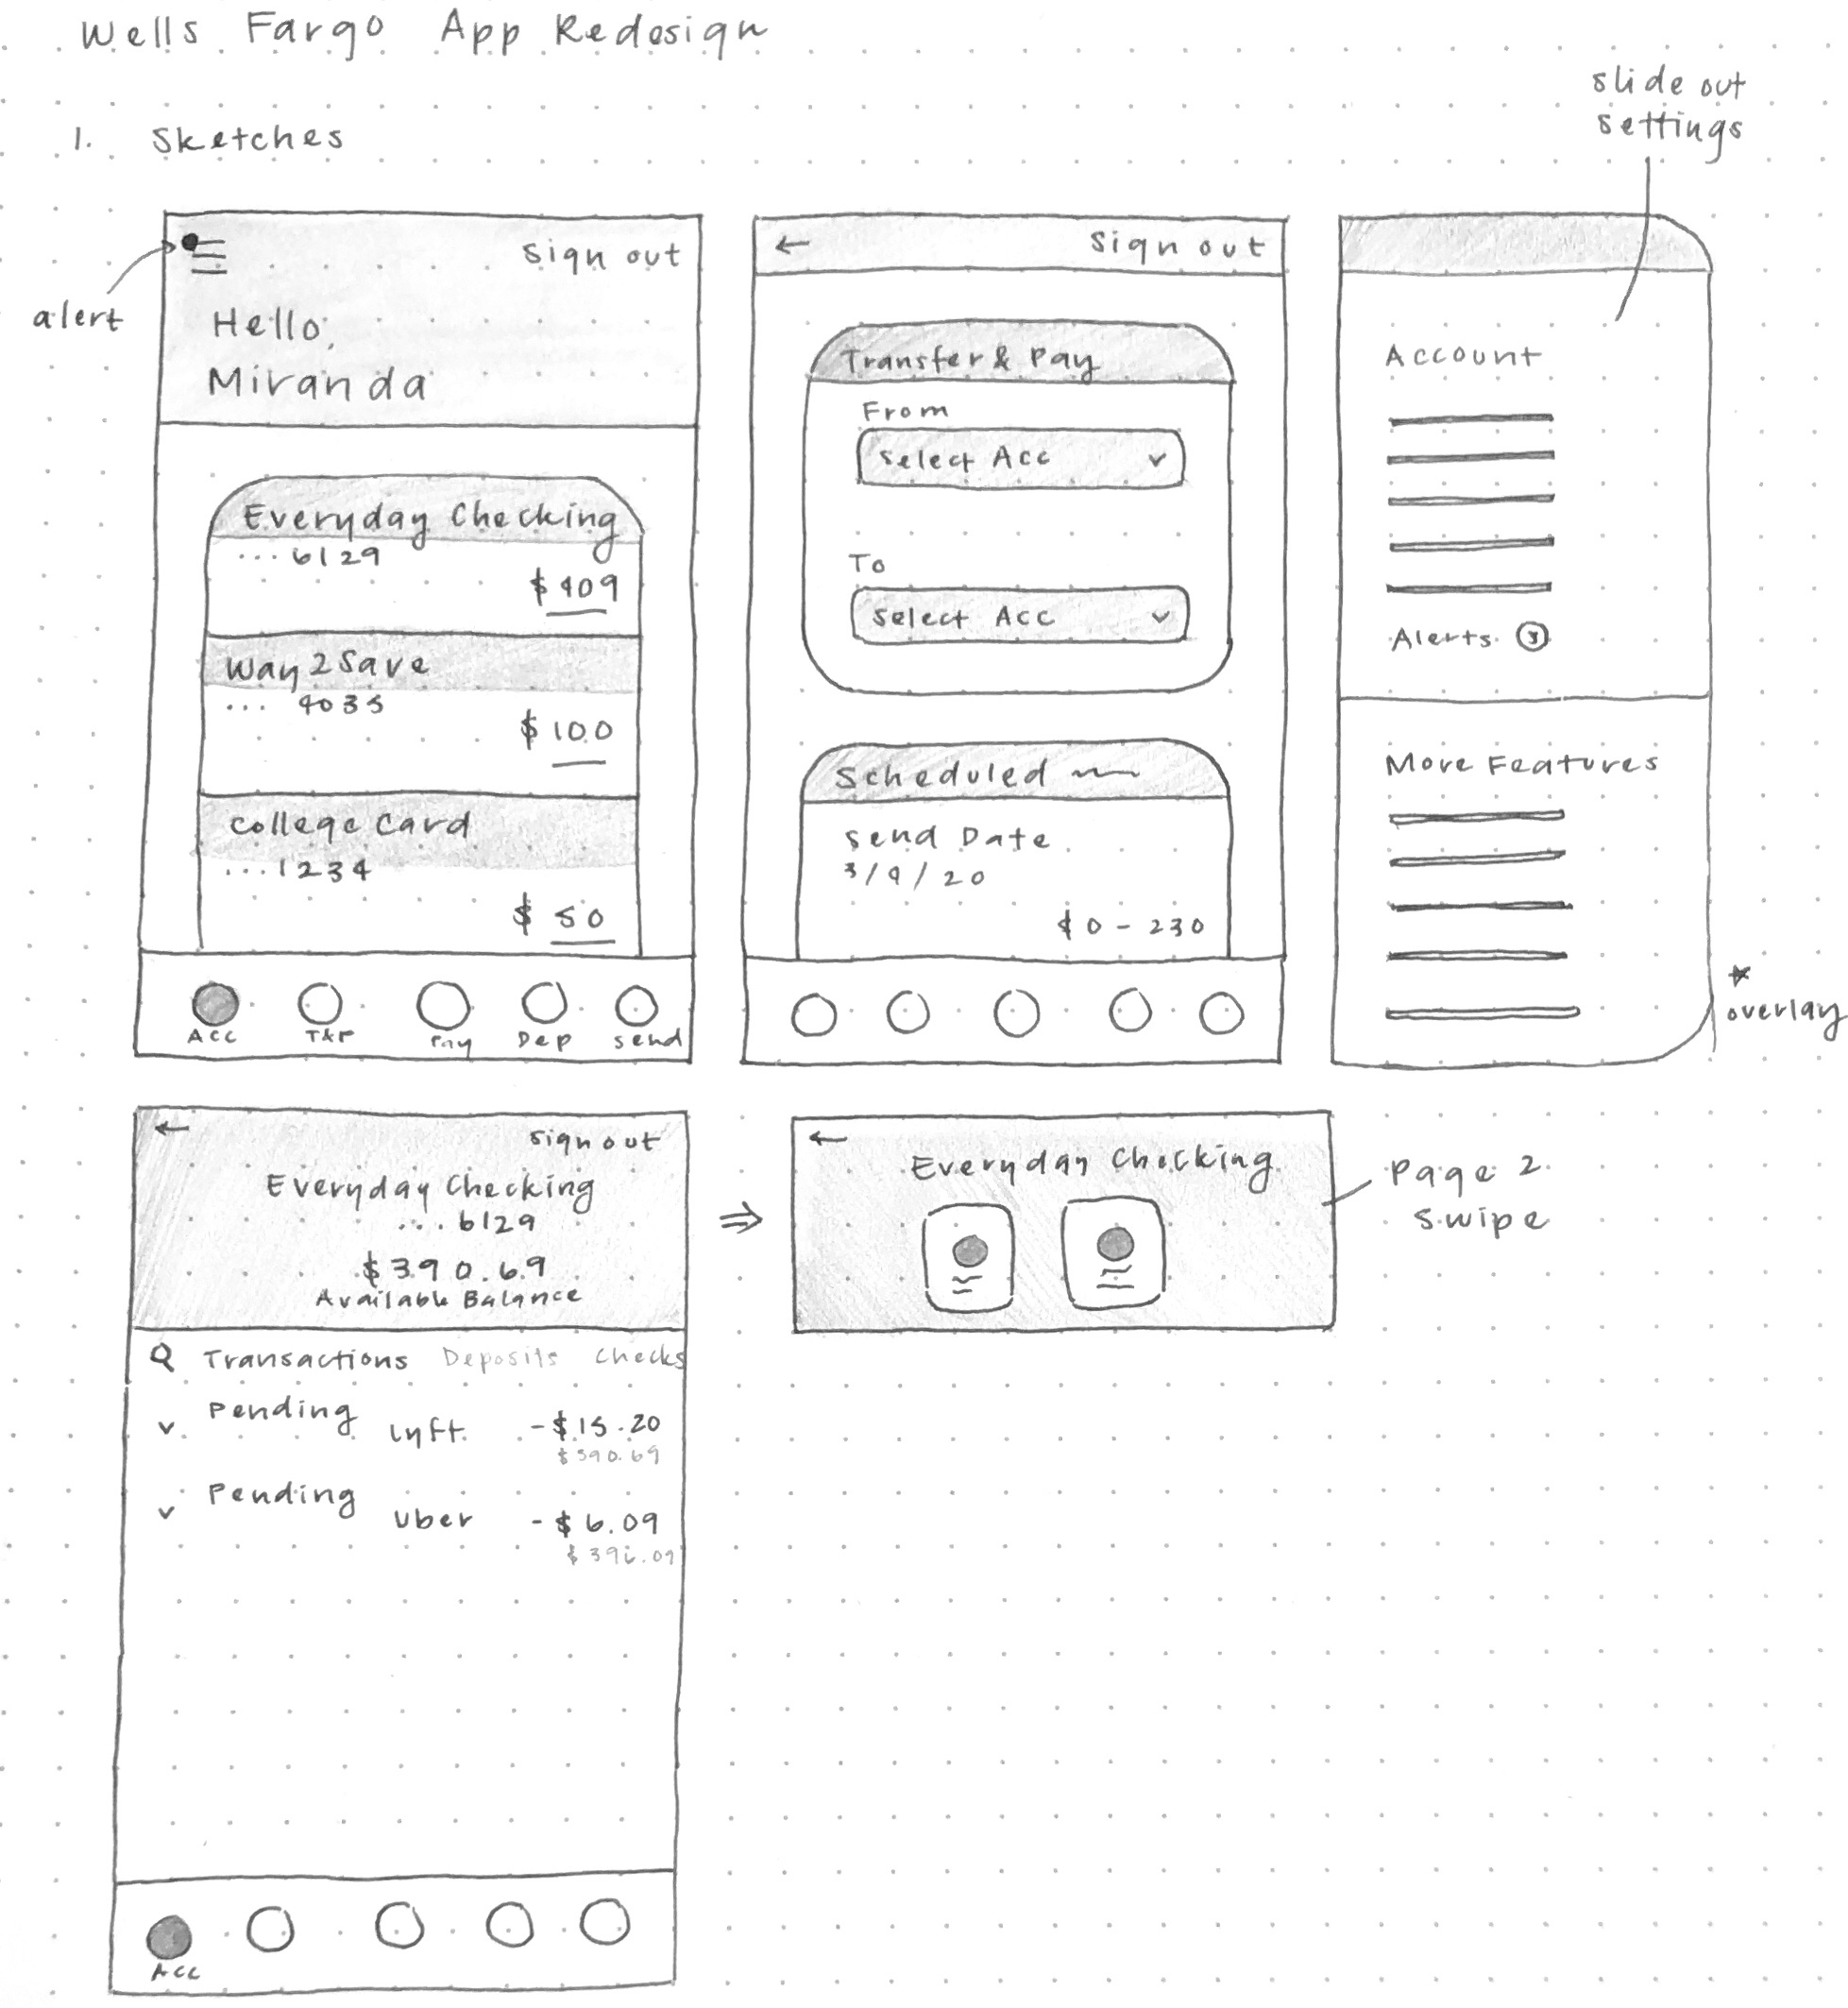 Wells Fargo App Redesign
1. Sketches
slide out
settings
alert
Sign out
Hello,
Miranda
Everyday Checking
... 6129
$409
Way2Save
... 4035
$100
College Card
...1234
$50
Acc T&P Pay Dep Send
←
Sign out
Transfer & Pay
From
Select Acc
To
Select Acc
Scheduled
Send Date
3/9/20
$0-230
Account
Alerts 3
More Features
* overlay
←
sign out
Everyday Checking
...6129
$390.69
Available Balance
Transactions Deposits Checks
Pending Lyft -$15.20
$390.69
Pending Uber -$6.09
Acc
⇒
←
Everyday Checking
Page 2
Swipe